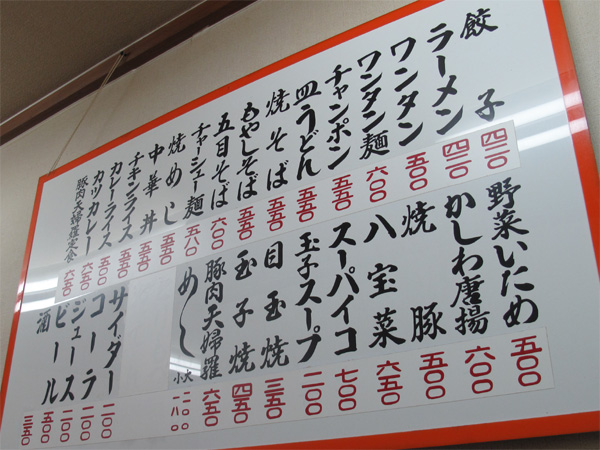 餃子 四二〇
ラーメン 四二〇
ワンタン 五〇〇
ワンタン麺 六〇〇
チャンポン 五五〇
皿うどん 五五〇
焼そば 五五〇
もやしそば 五五〇
五目そば 六〇〇
チャーシュー麺 五八〇
焼めし 五五〇
中華丼 五五〇
チキンライス 五五〇
カレーライス 五〇〇
カツカレー 六五〇
豚肉天婦羅定食 六五〇
野菜いため 五〇〇
かしわ唐揚 六〇〇
焼豚 五五〇
八宝菜 六五〇
スーパイコ 七〇〇
玉子スープ 二〇〇
目玉焼 三五〇
玉子焼 四五〇
豚肉天婦羅 六五〇
めし 大 二〇〇
小 一八〇
サイダー 二〇〇
コーラ 二〇〇
ジュース 二〇〇
ビール 五〇〇
酒 三五〇